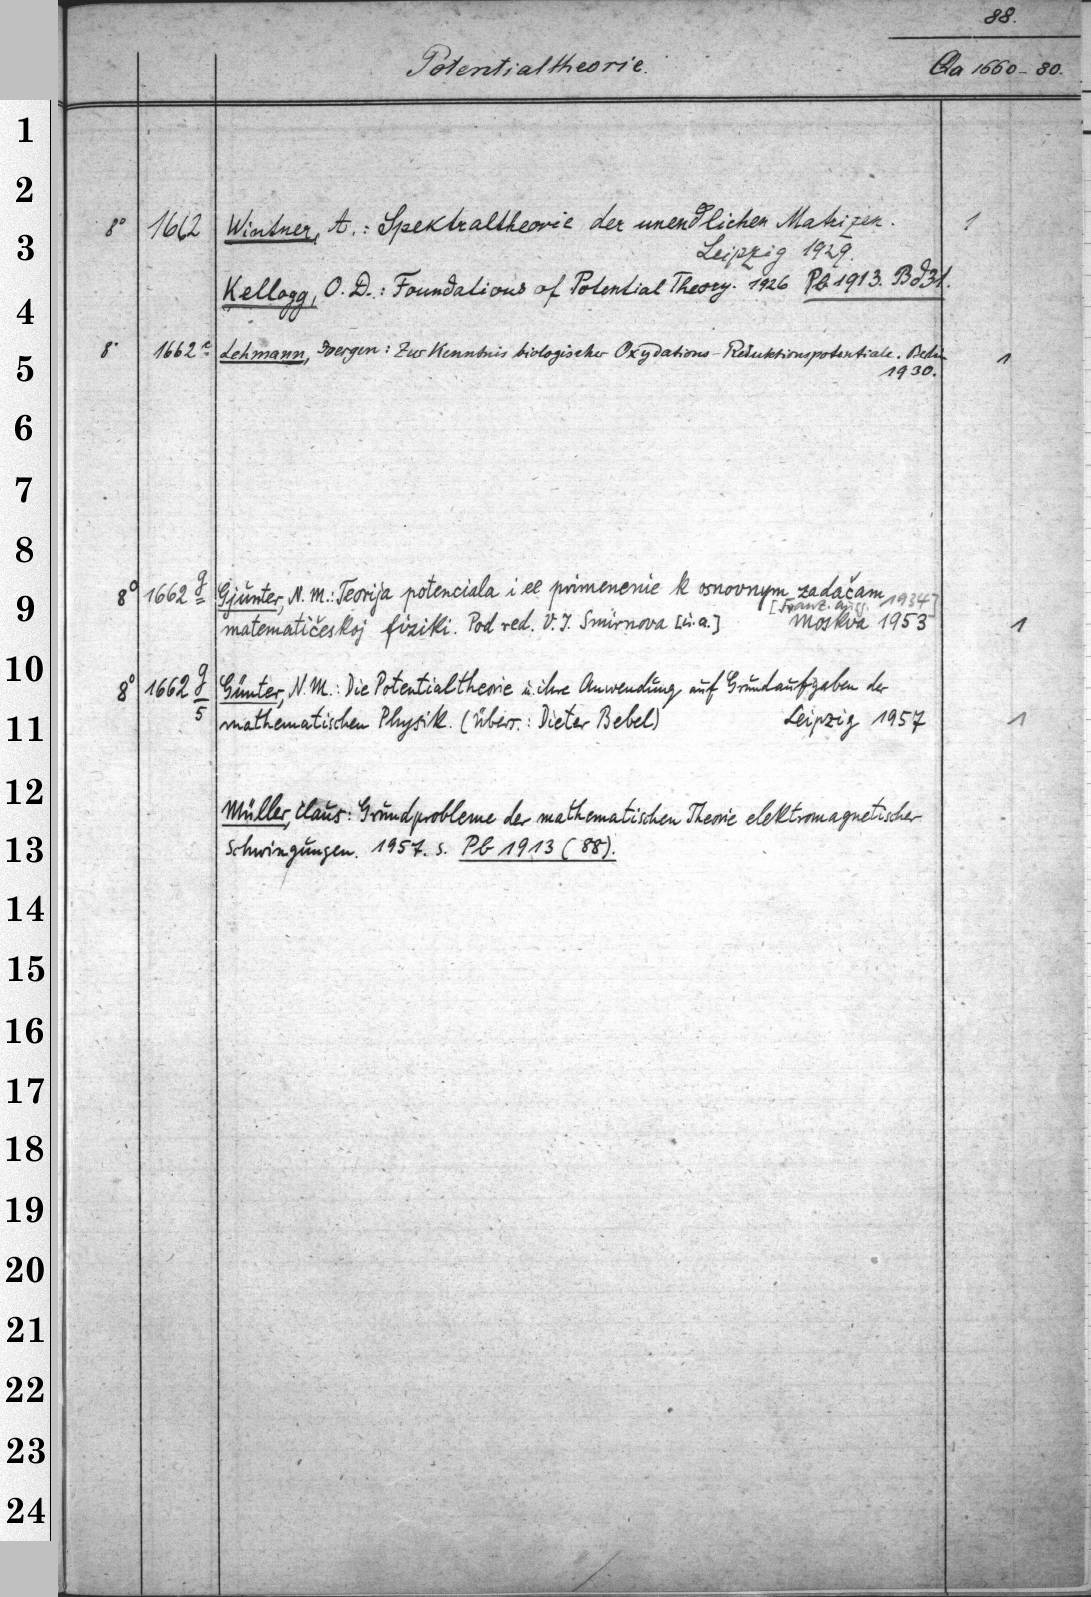 88.
Potentialtheorie.
Qa 1660-80.
1
2
8° 1662 Wintner, A.: Spektraltheorie der unendlichen Matrizen. 1
3
Leipzig 1929.
Kellogg, O. D.: Foundations of Potential Theory. 1926 Pb 1913. Bd 31.
4
8° 1662 e Lehmann, Joergen: Zur Kenntnis biologischer Oxydations-Reduktionspotentiale. Berlin 1
5
1930.
6
7
8
8° 1662 g Gjunter, N. M.: Teorija potenciala i ee primenenie k osnovnym zadačam
9
[Franz. Ausg. 1934]
matematičeskoj fiziki. Pod red. V. I. Smirnova [u.a.] Moskva 1953 1
10
8° 1662 g/5 Günter, N. M.: Die Potentialtheorie u. ihre Anwendung auf Grundaufgaben der
11
mathematischen Physik. (Übers.: Dieter Bebel) Leipzig 1957 1
12
Müller, Claus: Grundprobleme der mathematischen Theorie elektromagnetischer
13
Schwingungen. 1957. s. Pb 1913 (88).
14
15
16
17
18
19
20
21
22
23
24